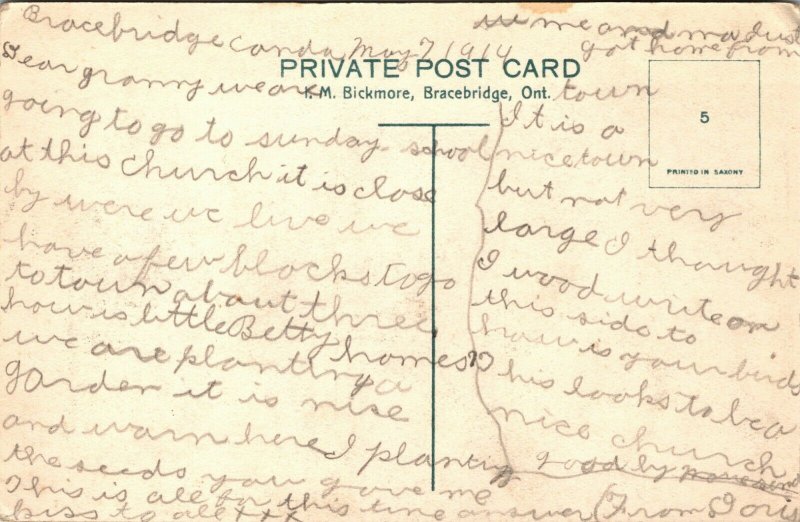 Bracebridge Canda May 7 1914
PRIVATE POST CARD
F. M. Bickmore, Bracebridge, Ont.
5
PRINTED IN SAXONY
Dear granny we are
going to go to sunday school
at this church it is close
by were we live we
have a few blocks to go
to town about three
how is little Betty homes?
we are planting a
garden it is nise
and warm here I planting
the seeds you gave me
This is all for this time answer
kiss to all xxx
me and ma dust
got home from
town
It is a
nice town
but not very
large I thought
I wood write on
this side to
how is your birds
This looks to be a
nice church
good by
(From Doris